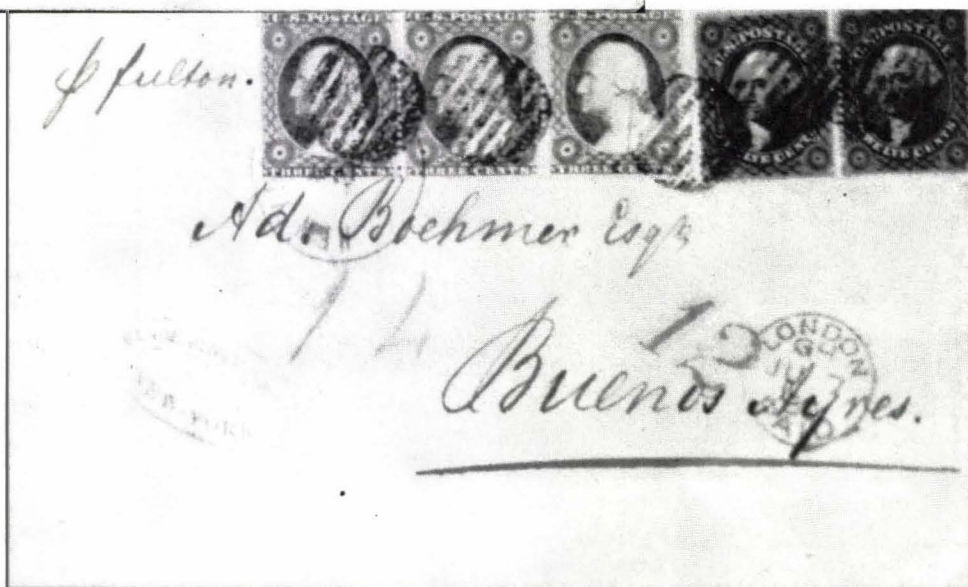 U.S. POSTAGE U.S. POSTAGE U.S. POSTAGE U.S. POSTAGE U.S. POSTAGE
THREE CENTS THREE CENTS THREE CEN TWELVE CENTS
p fulton.
Ad. Boehmer Esqr
14
12
LONDON
PAID
Buenos Ayres.
NEW YORK